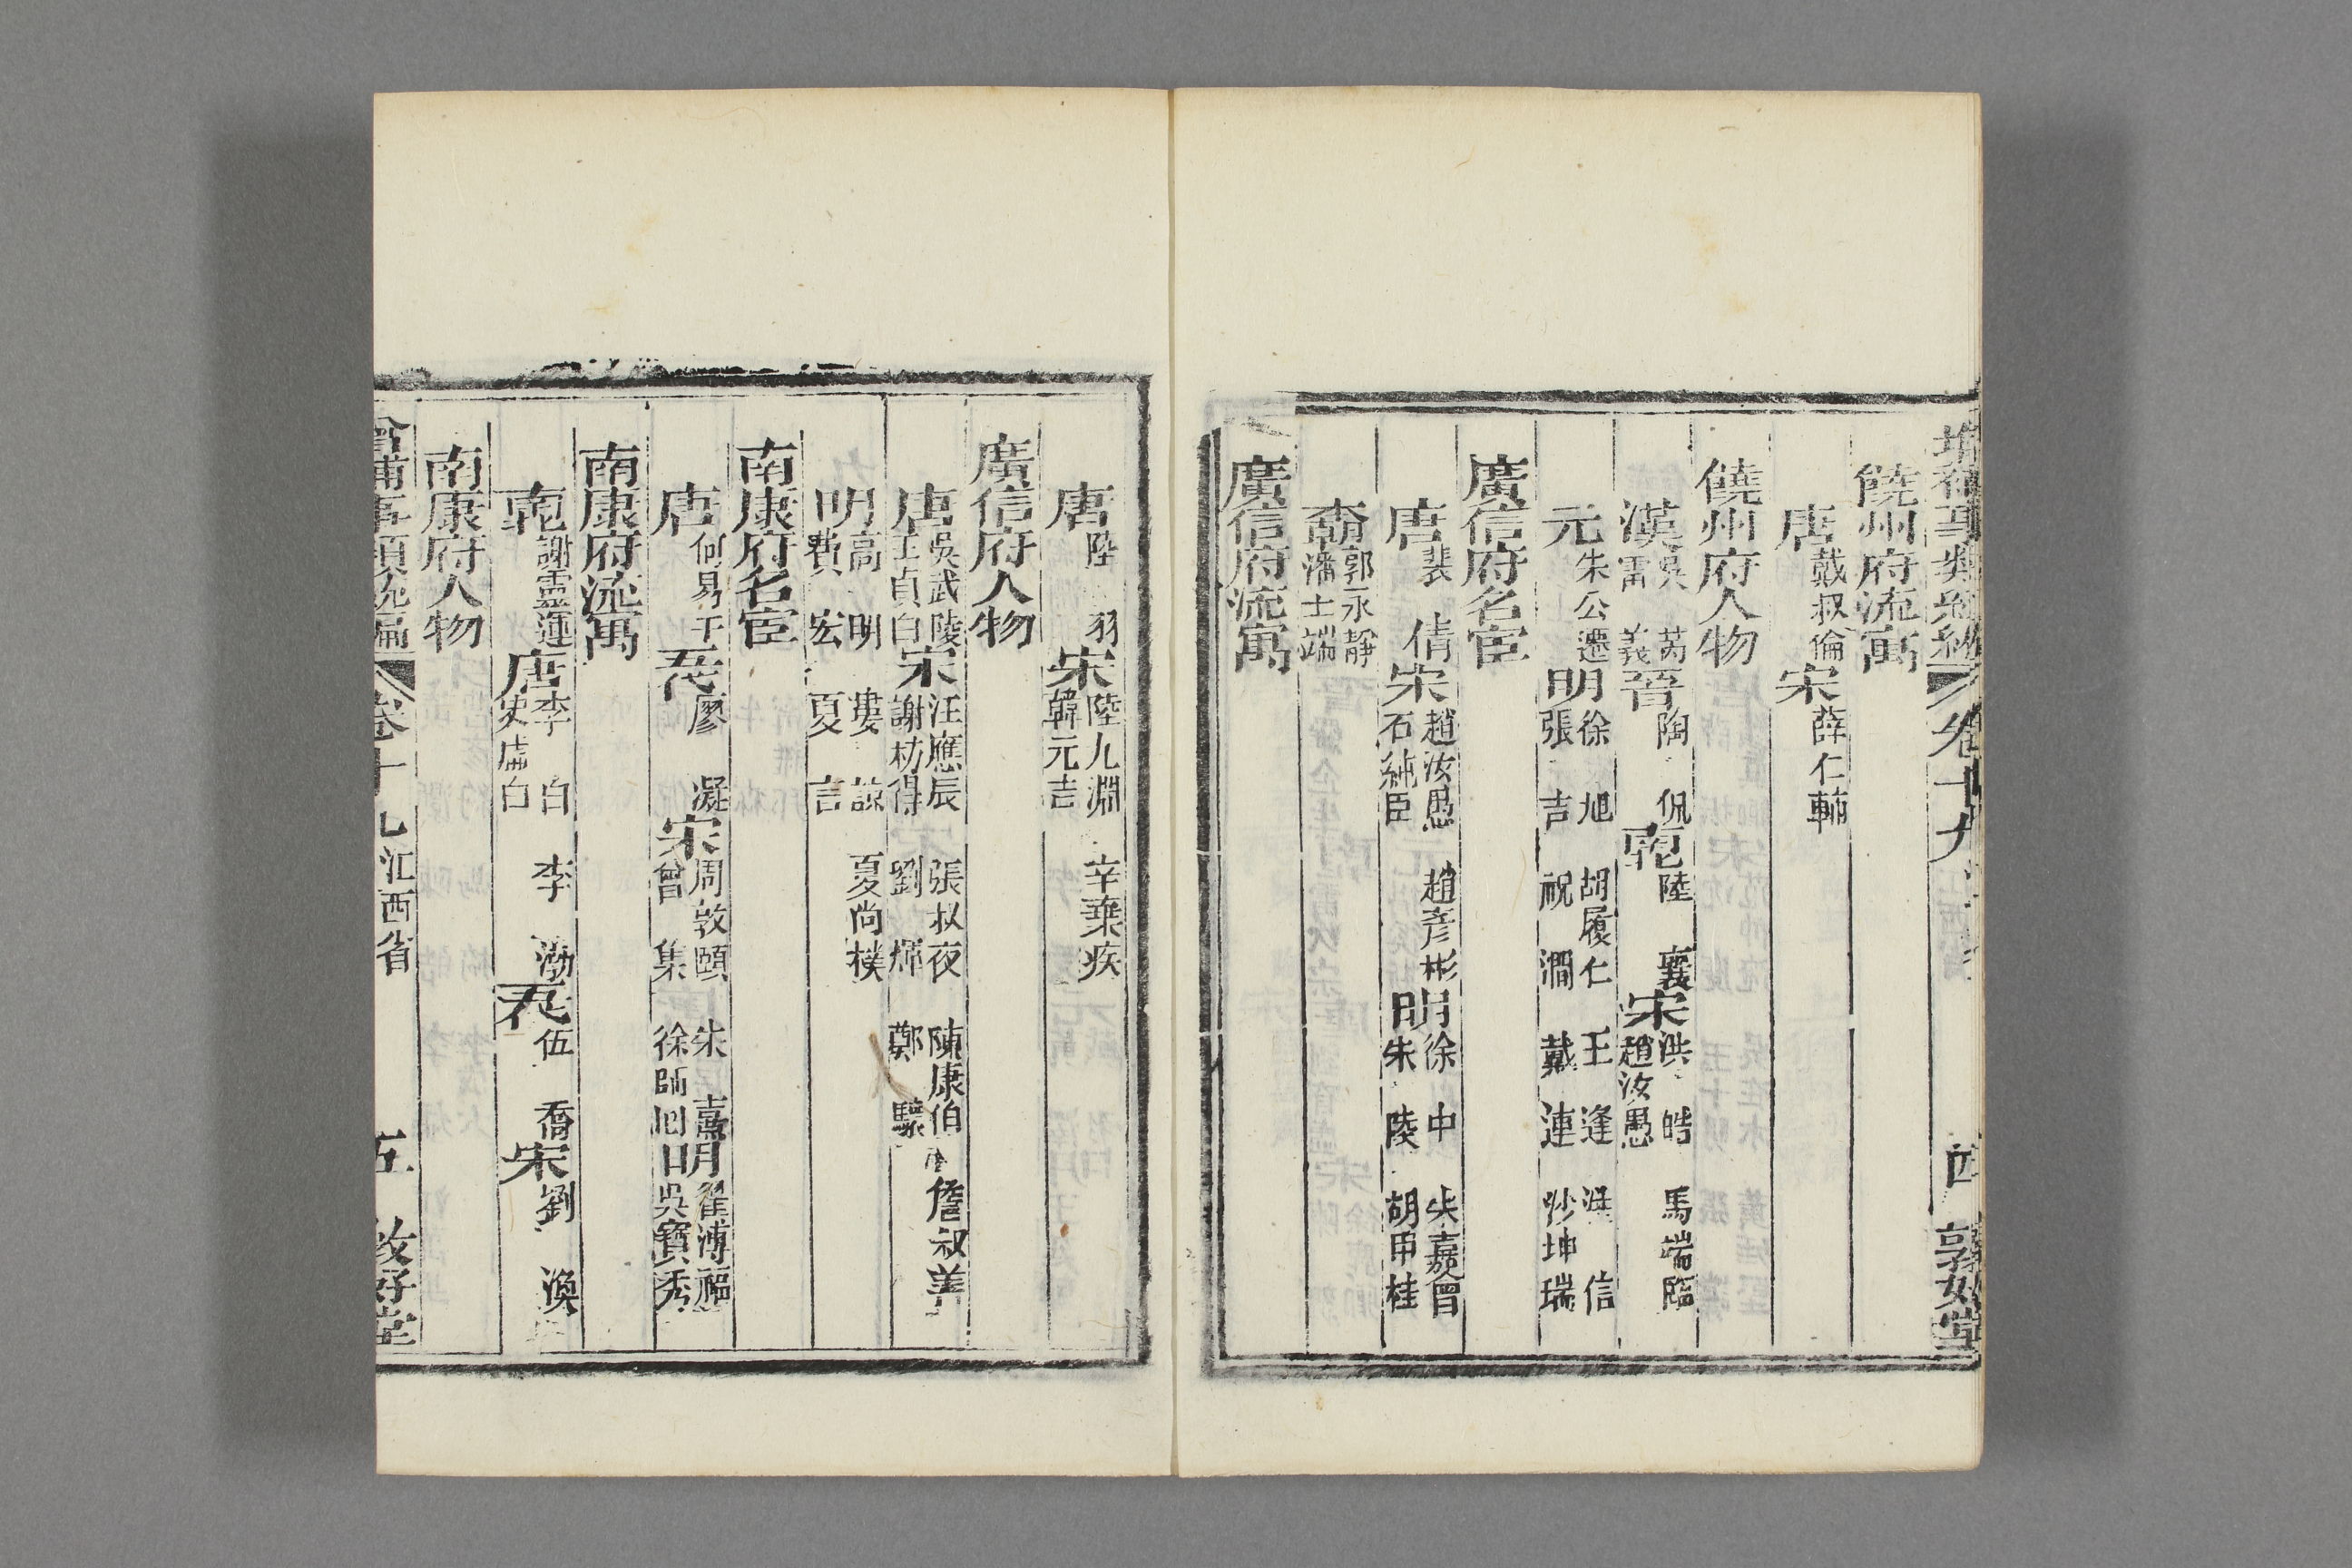 饒州府流寓
唐 戴叔倫 宋 薛仁輔
饒州府人物
漢 吳芮 雷義 晉 陶侃 陸襄 宋 洪皓 趙汝愚 馬端臨
元 朱公遷 明 徐旭 張吉 胡履仁 祝瀾 王逢 戴連 洪信 沙坤瑞
廣信府名宦
唐 裴倩 宋 趙汝愚 石純臣 趙彥彬 明 徐中 朱陵 柴嘉會 胡甲桂
郭永靜 潘士端
廣信府流寓
唐 陸羽 宋 陸九淵 韓元吉 辛棄疾
廣信府人物
唐 吳武陵 王貞白 宋 汪應辰 謝枋得 張叔夜 劉煇 陳康伯 鄭驤 詹叔善
明 高明 費宏 婁諒 夏言 夏尚樸
南康府名宦
唐 何易于 五代 廖凝 宋 周敦頤 曾集 朱熹 徐師回 明 翟溥福 吳寶秀
南康府流寓
謝靈運 唐 李白 史虛白 李渤 五代 伍喬 宋 劉渙
南康府人物
卷十九 江西省 五 敦好堂